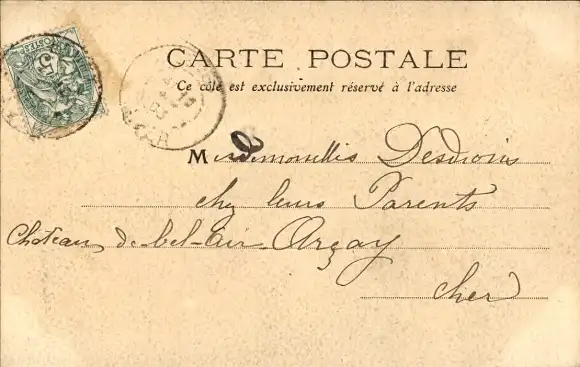 CARTE POSTALE
Ce côté est exclusivement réservé à l'adresse
Mesdemoiselles Desdions
chez leurs Parents
Château de bel-air Arçay
Cher